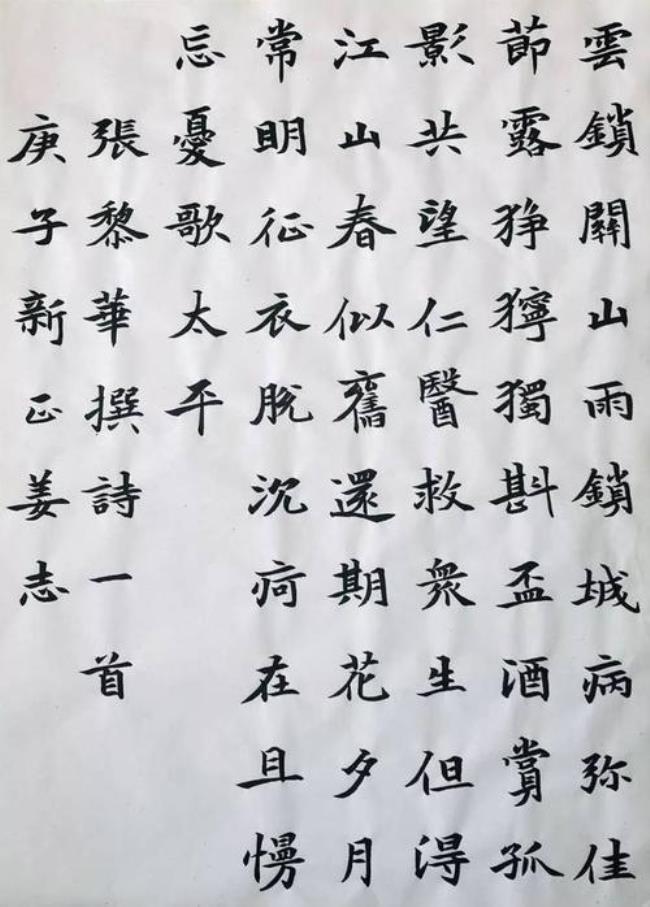 雲鎖關山雨鎖城病弥佳
節露狰獰獨斟盃酒賞孤
影共望仁醫救衆生但淂
江山春似舊還期花夕月
常明征衣脫沉疴在且慢
忘憂歌太平
張黎華撰詩一首
庚子新正姜志